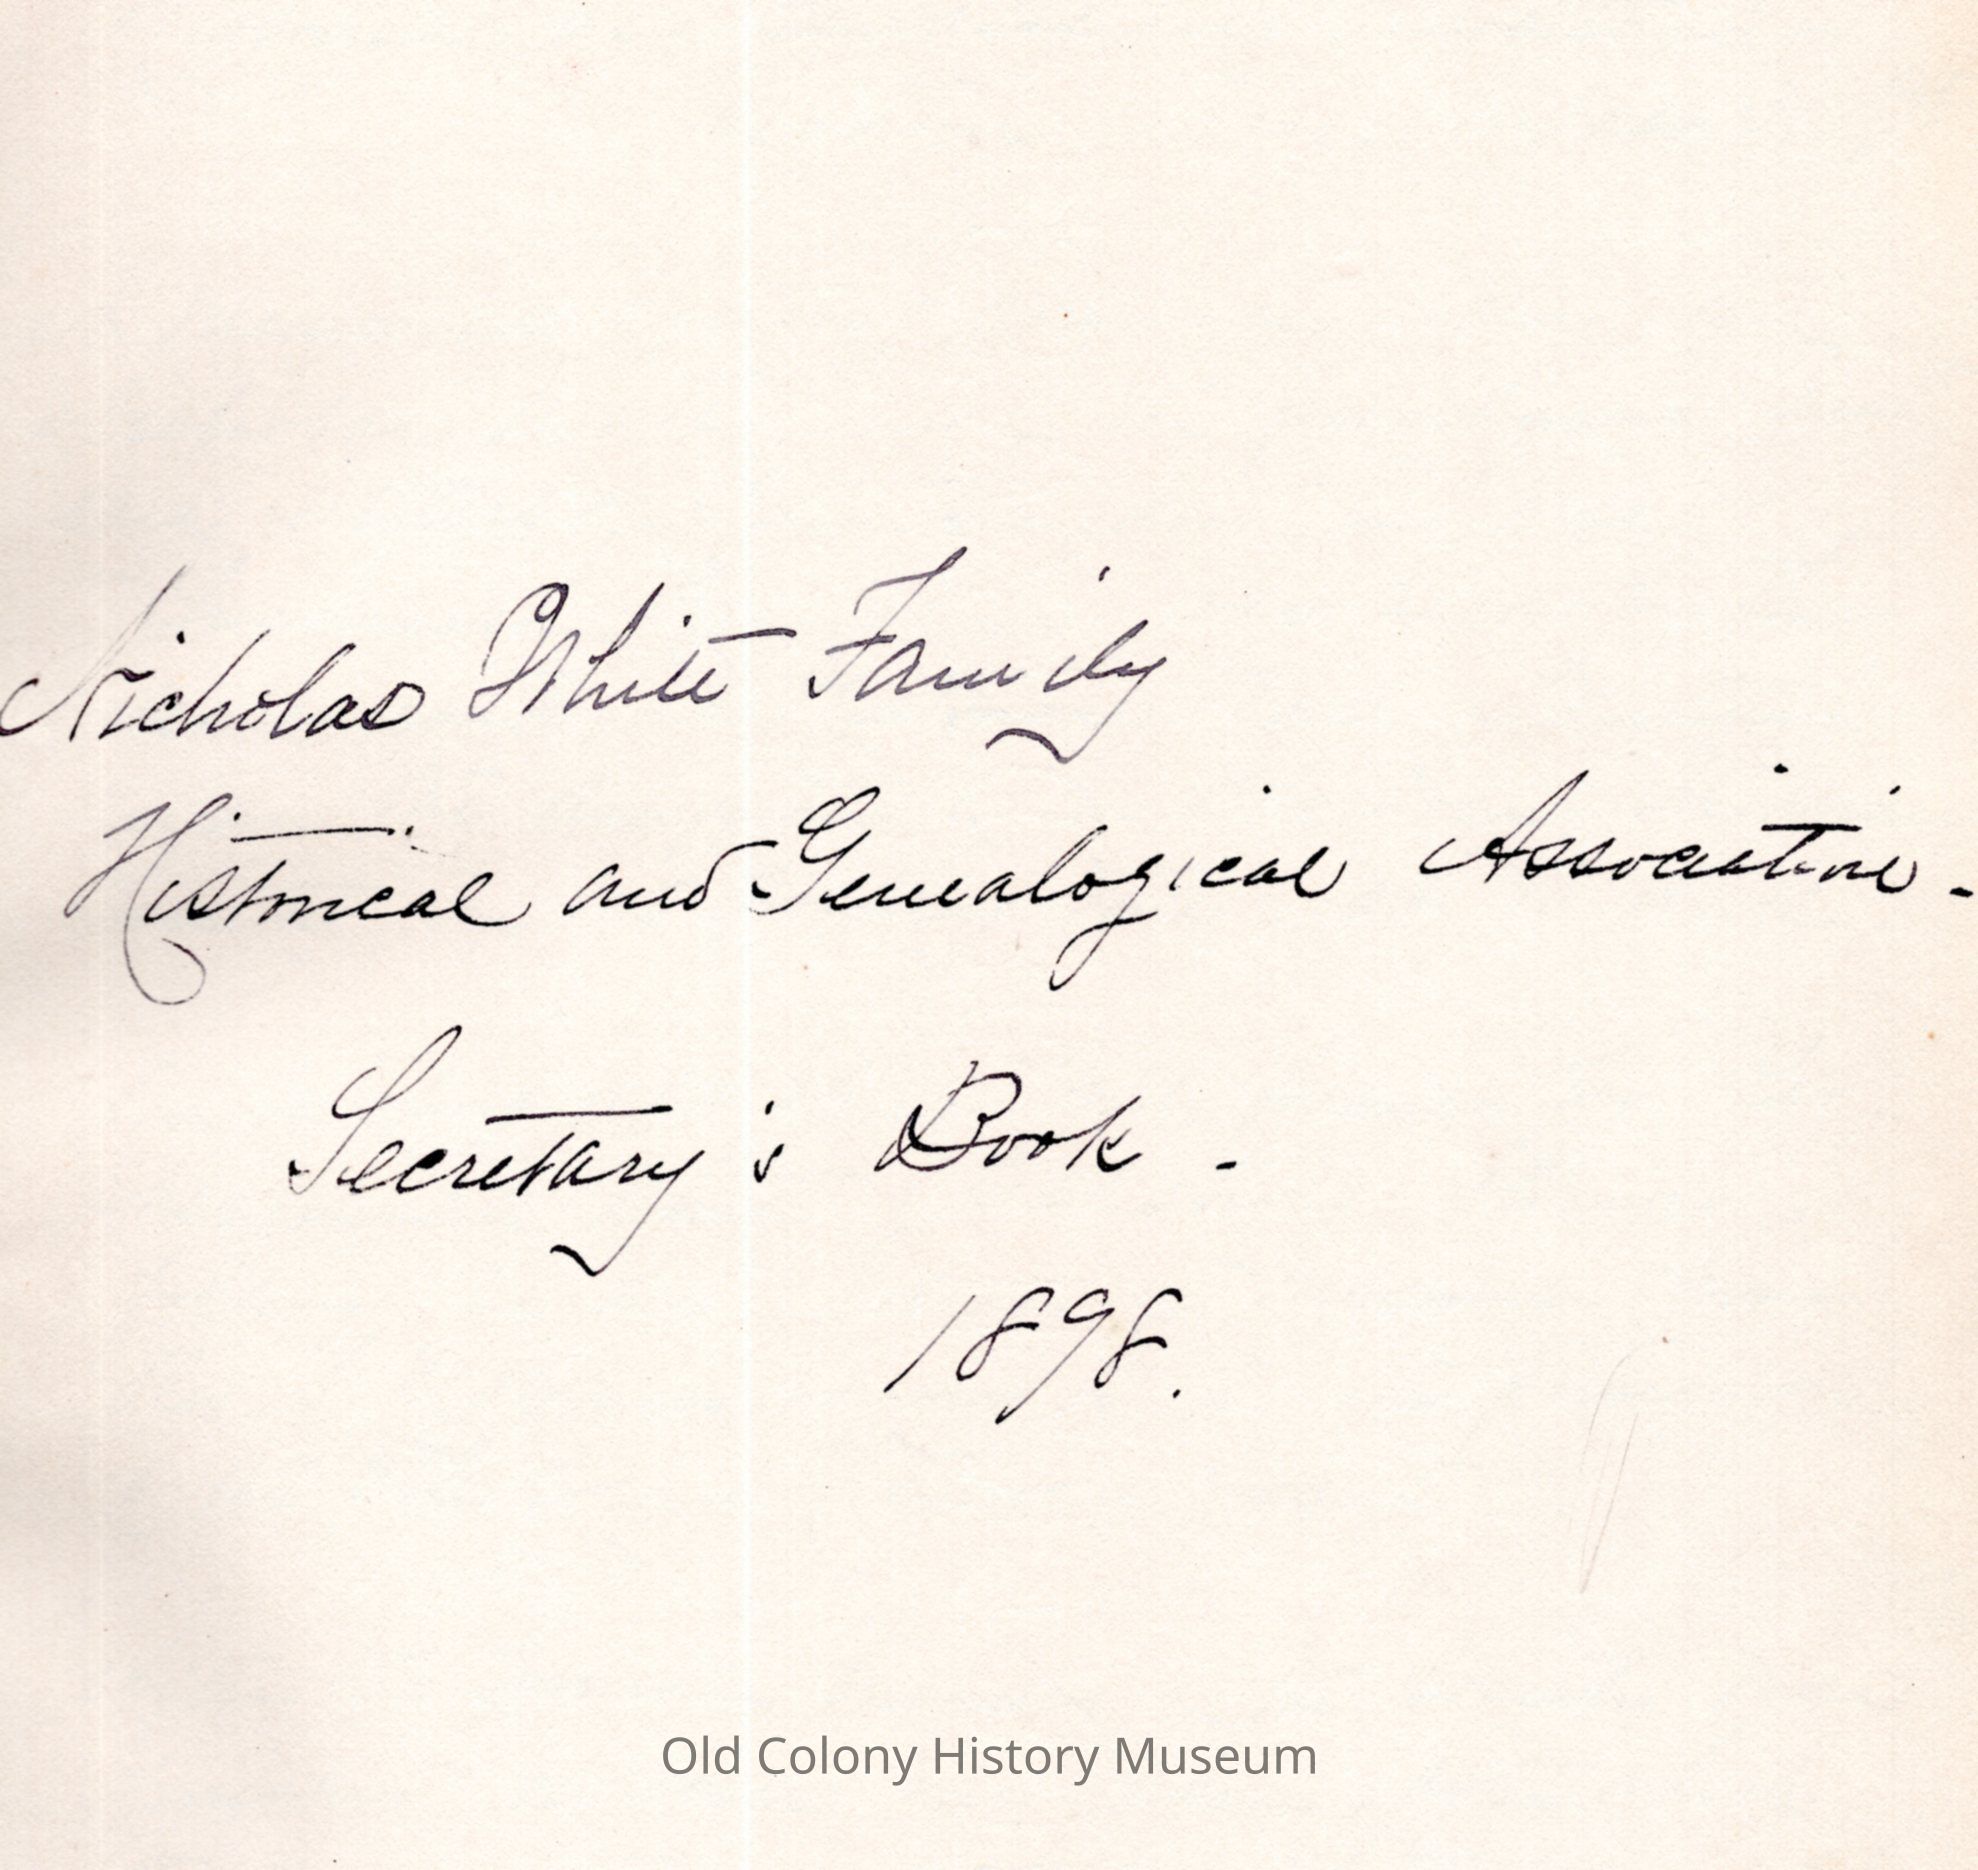 Nicholas White Family
Historical and Genealogical Association -
Secretary's Book -
1898.
Old Colony History Museum